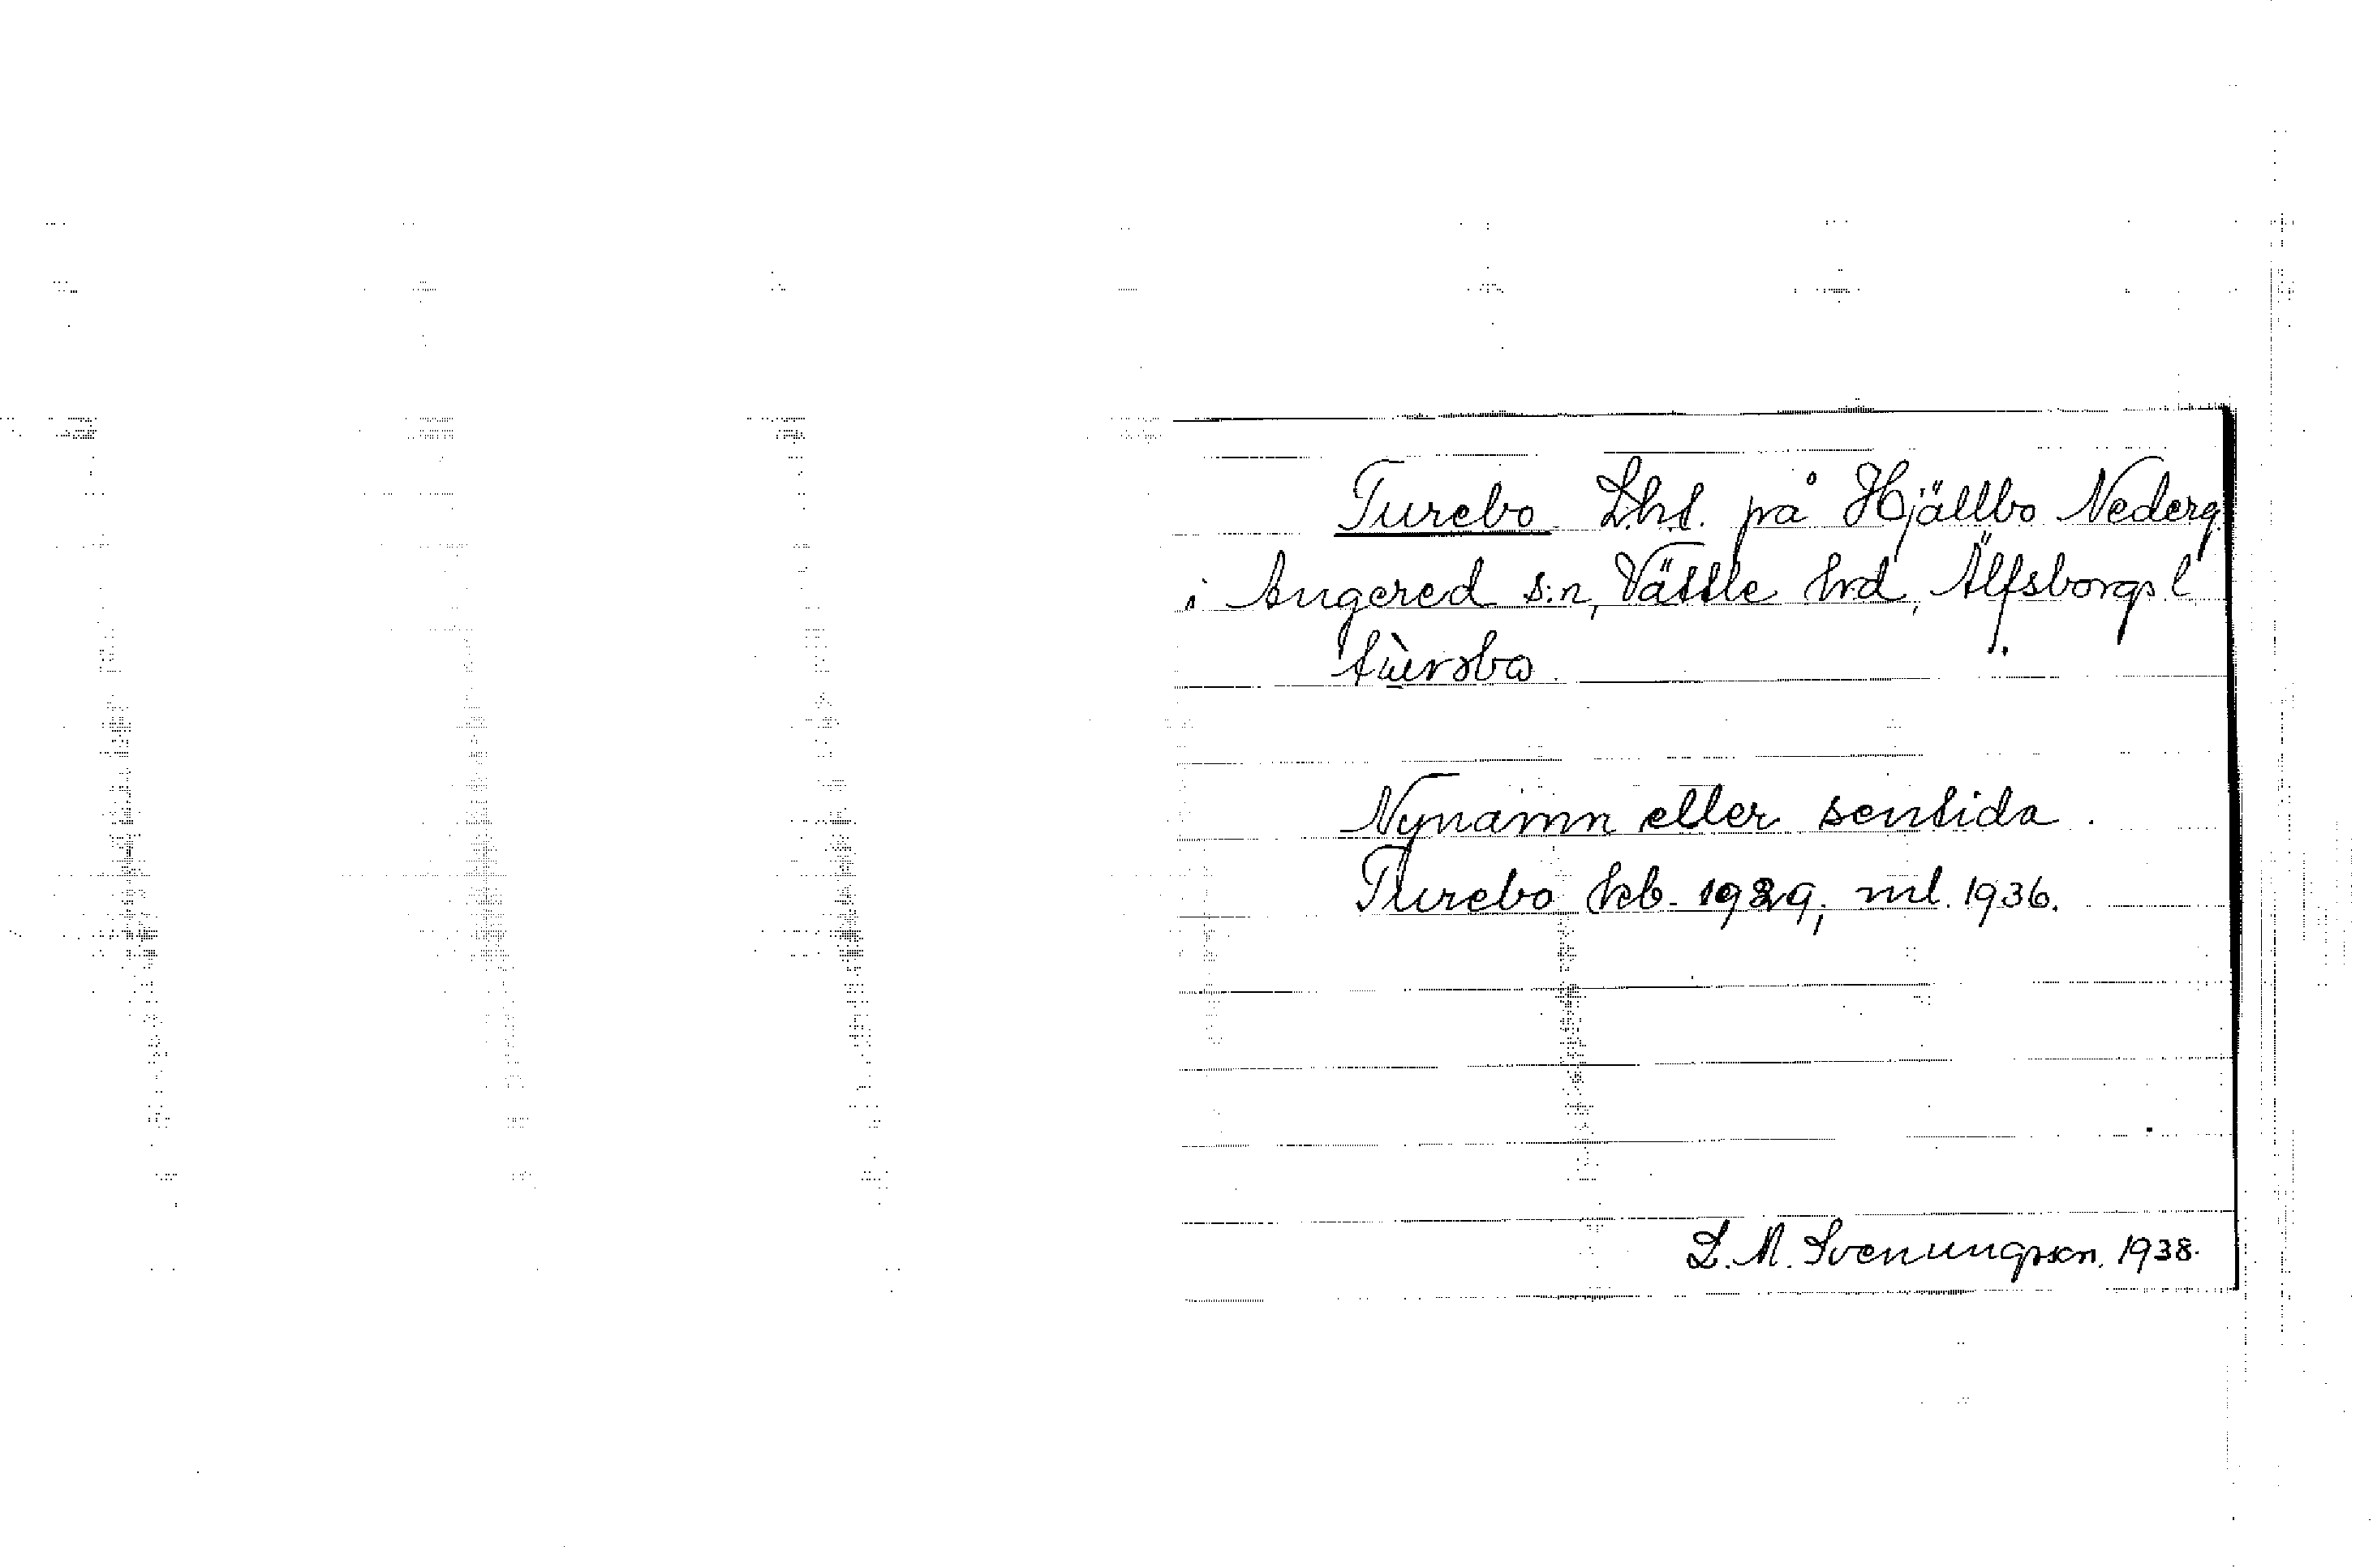 Turebo Lht. på Hjällbo Nederg.
i Angered s:n, Vättle hrd, Älfsborgs l.
tùrəbo
Nynamn eller sentida.
Turebo kb. 1929; ml. 1936.
L. M. Svenungsson. 1938.